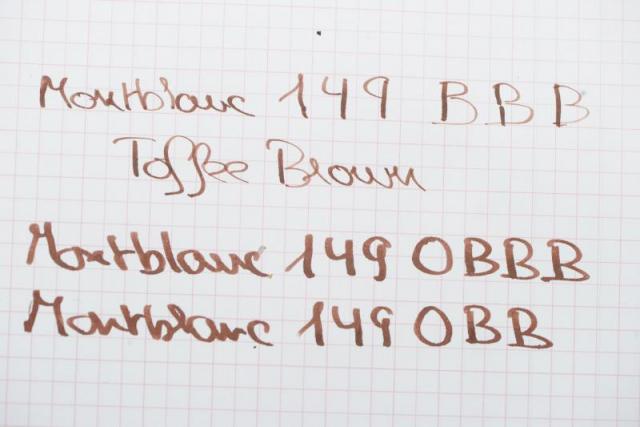 Montblanc 149 BBB
Toffee Brown
Montblanc 149 OBBB
Montblanc 149 OBB